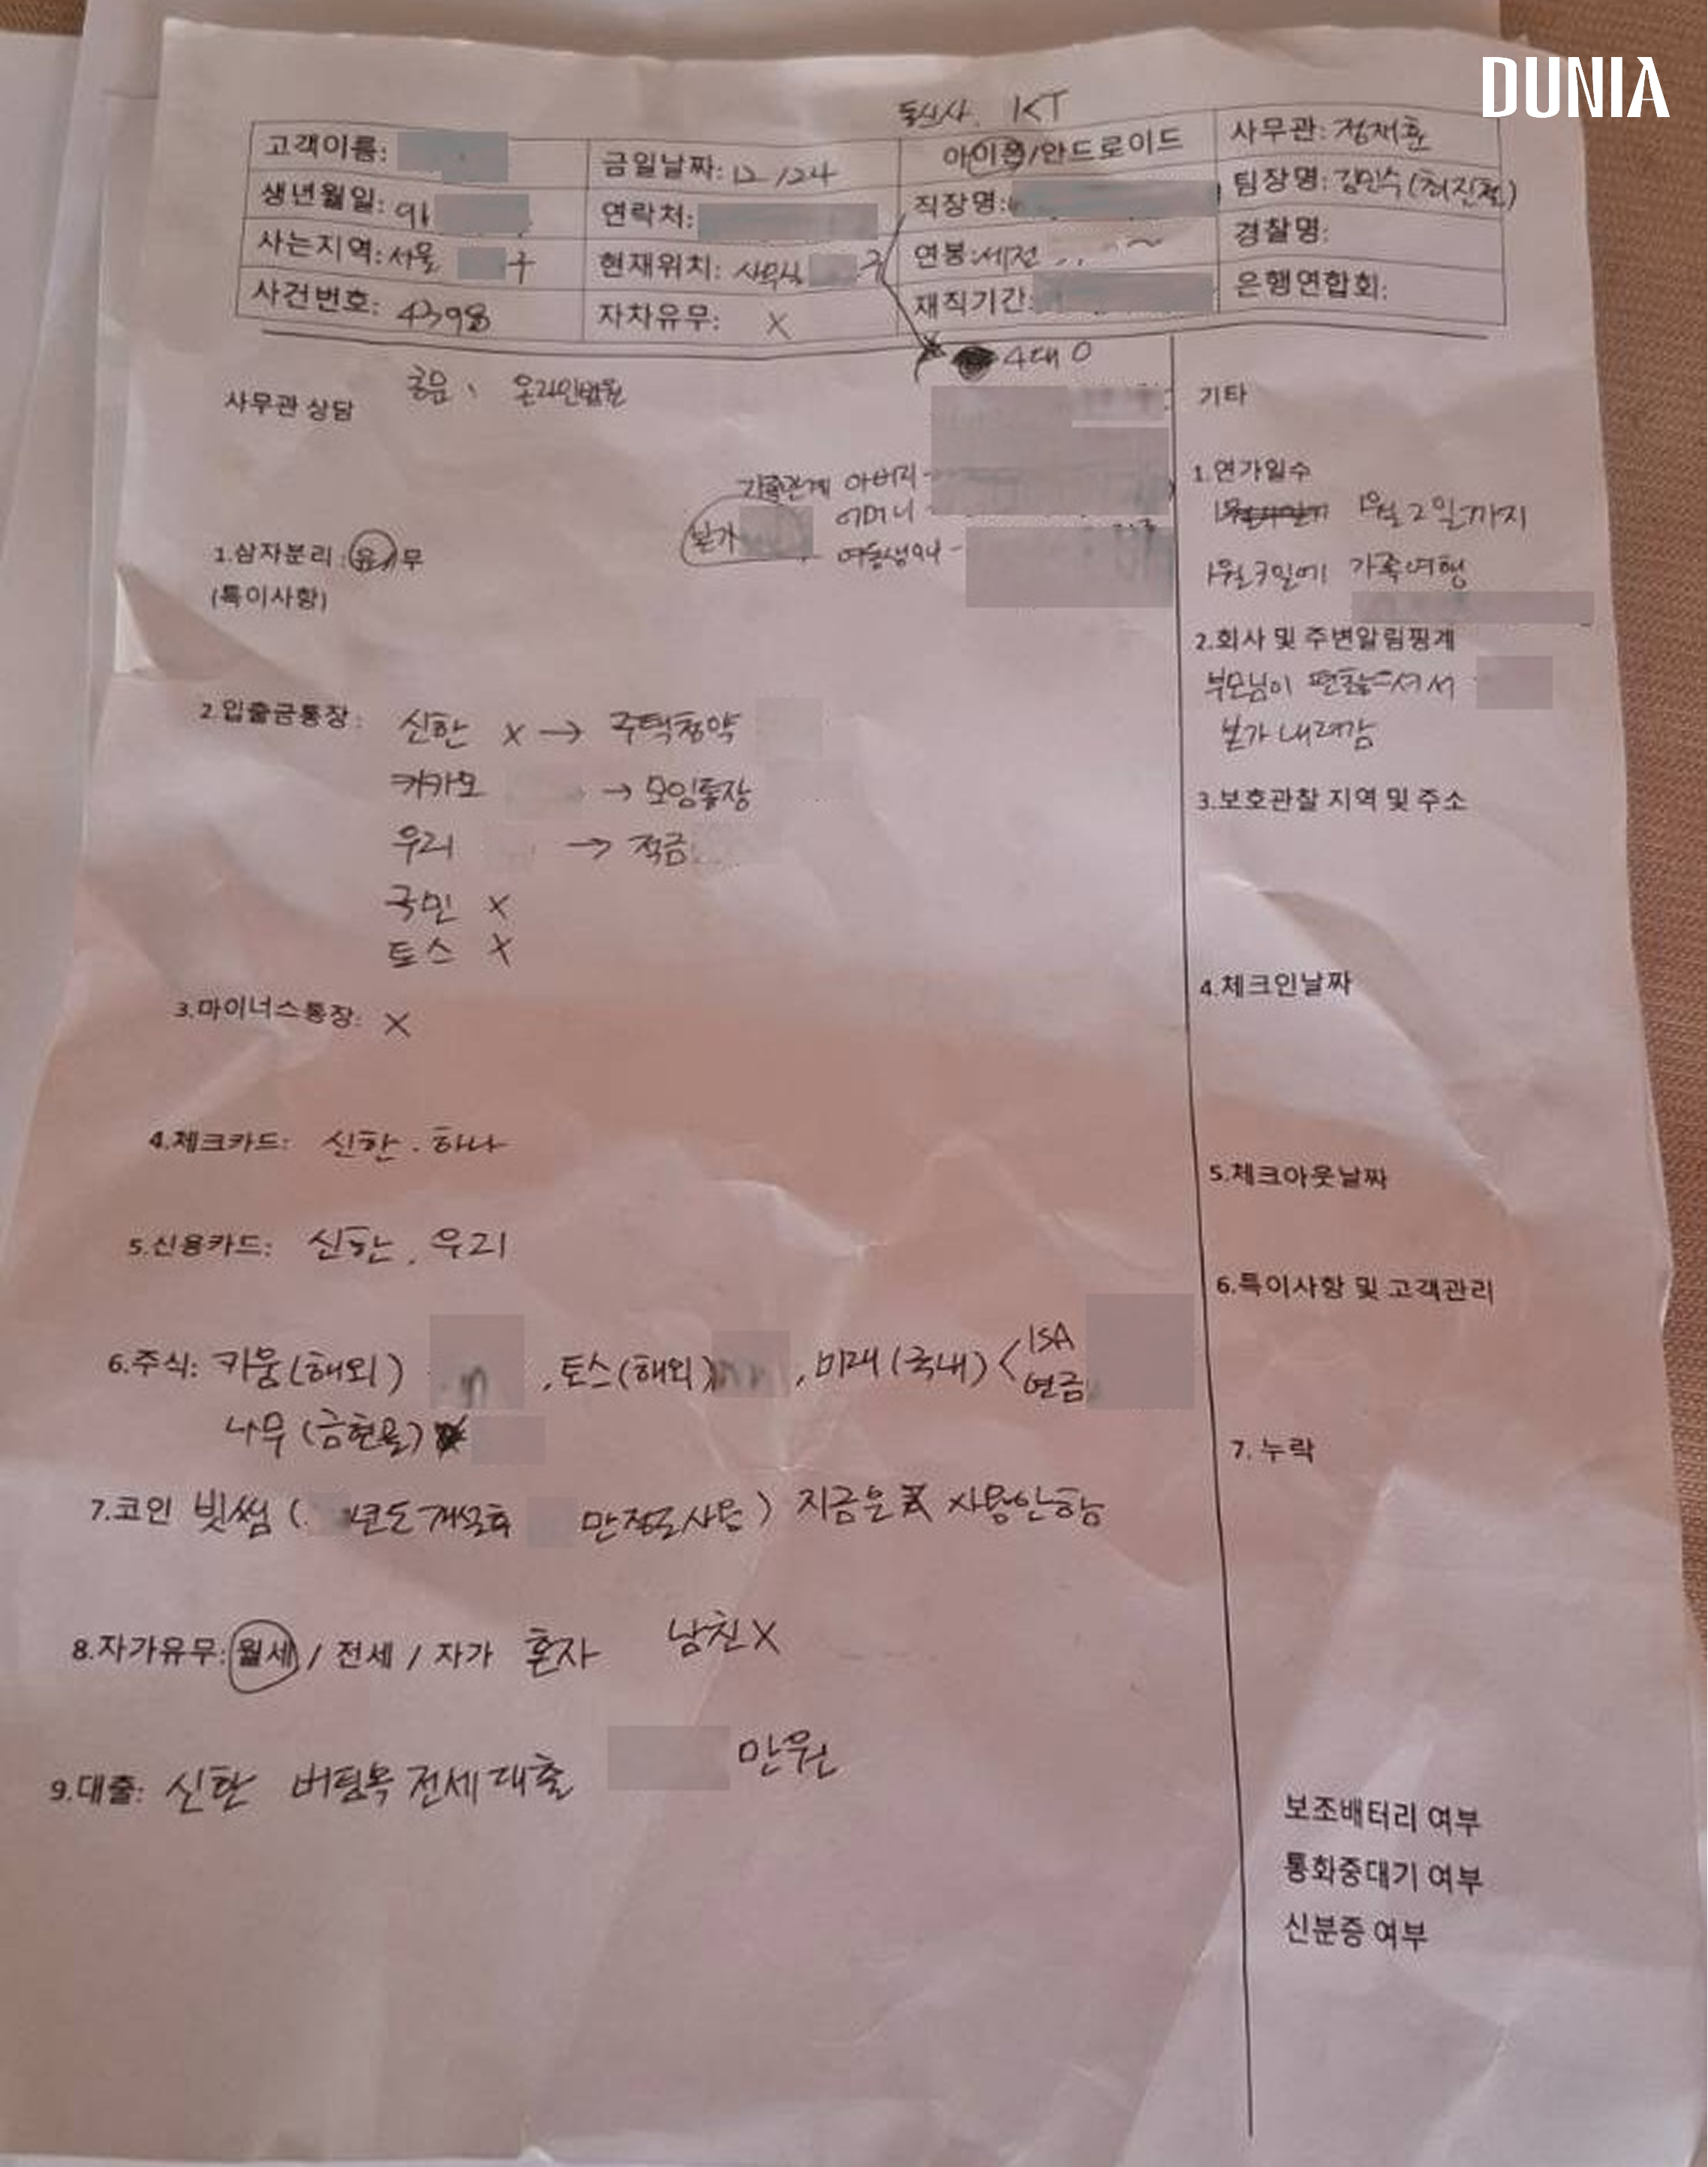 DUNIA
통신사. KT
고객이름:
금일날짜: 12/24
아이폰/안드로이드
사무관: 정재훈
생년월일: 91
연락처:
직장명:
팀장명: 김민수(최진철)
사는지역: 서울 구
현재위치: 사무실 구
연봉: 세전
경찰명:
사건번호: 4398
자차유무: X
재직기간:
은행연합회:
4대 O
사무관 상담
기타
가족관계 아버지 -
본가 어머니 -
여동생 94 -
1.삼자분리 : 유/무
(특이사항)
1.연가일수
1월 2일까지
1월 3일에 가족여행
2.회사 및 주변알림핑계
부모님이 편찮으셔서
본가 내려감
2.입출금통장: 신한 X → 주택청약
카카오 → 모임통장
우리 → 적금
국민 X
토스 X
3.보호관찰 지역 및 주소
3.마이너스통장: X
4.체크인날짜
4.체크카드: 신한 . 하나
5.체크아웃날짜
5.신용카드: 신한 , 우리
6.특이사항 및 고객관리
6.주식: 키움(해외) , 토스(해외) , 미래(국내) < ISA
연금
나무(금현물)
7. 누락
7.코인 빗썸 ( 년도 개설후 만정도 사용) 지금은 사용안함
8.자가유무: 월세 / 전세 / 자가 혼자 남친X
9.대출: 신한 버팀목 전세대출 만원
보조배터리 여부
통화중대기 여부
신분증 여부